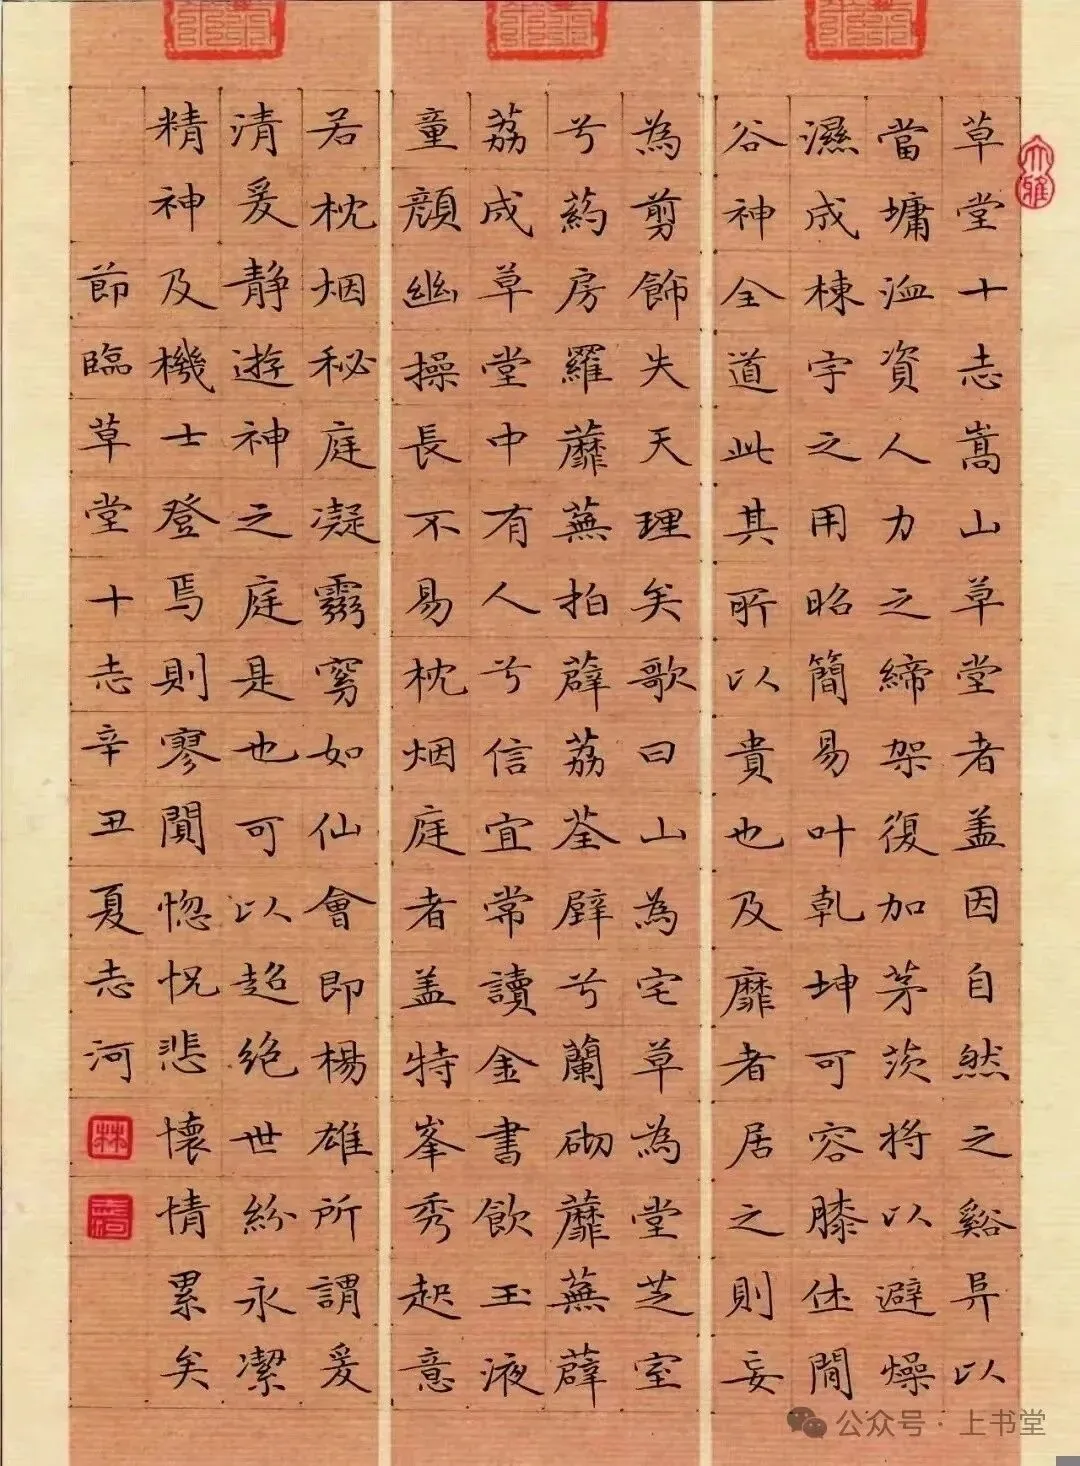 草堂十志嵩山草堂者盖因自然之谿异以
當墉洫資人力之締架復加茅茨将以避燥
濕成棟宇之用昭簡易叶乾坤可容膝休閒
谷神全道此其所以貴也及靡者居之則妄
為剪飾失天理矣歌曰山為宅草為堂芝室
兮葯房羅蘼蕪拍薜荔荃壁兮蘭砌蘼蕪薜
荔成草堂中有人兮信宜常讀金書飲玉液
童顔幽操長不易枕烟庭者盖特峯秀起意
若枕烟秘庭凝靄窅如仙會即楊雄所謂爰
清爰静遊神之庭是也可以超絶世紛永潔
精神及機士登焉則寥闃惚怳悲懷情累矣
節臨草堂十志辛丑夏志河
大雅
林
志河
公众号·上书堂